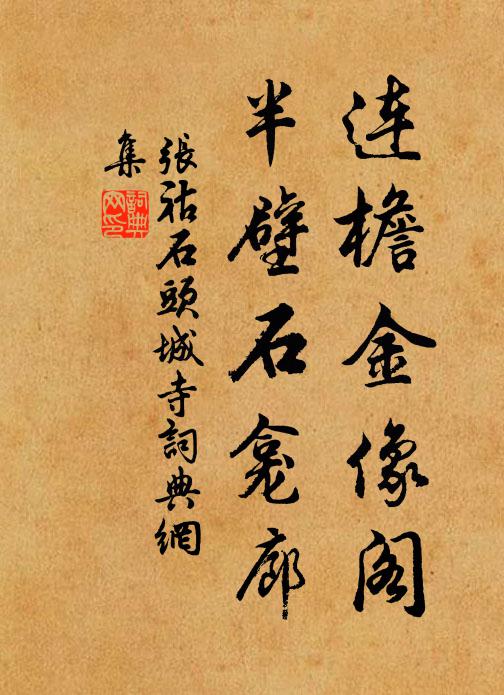 連檐金像閣
半壁石龕廊
張祜石頭城寺詞典網
集
詞典
网印